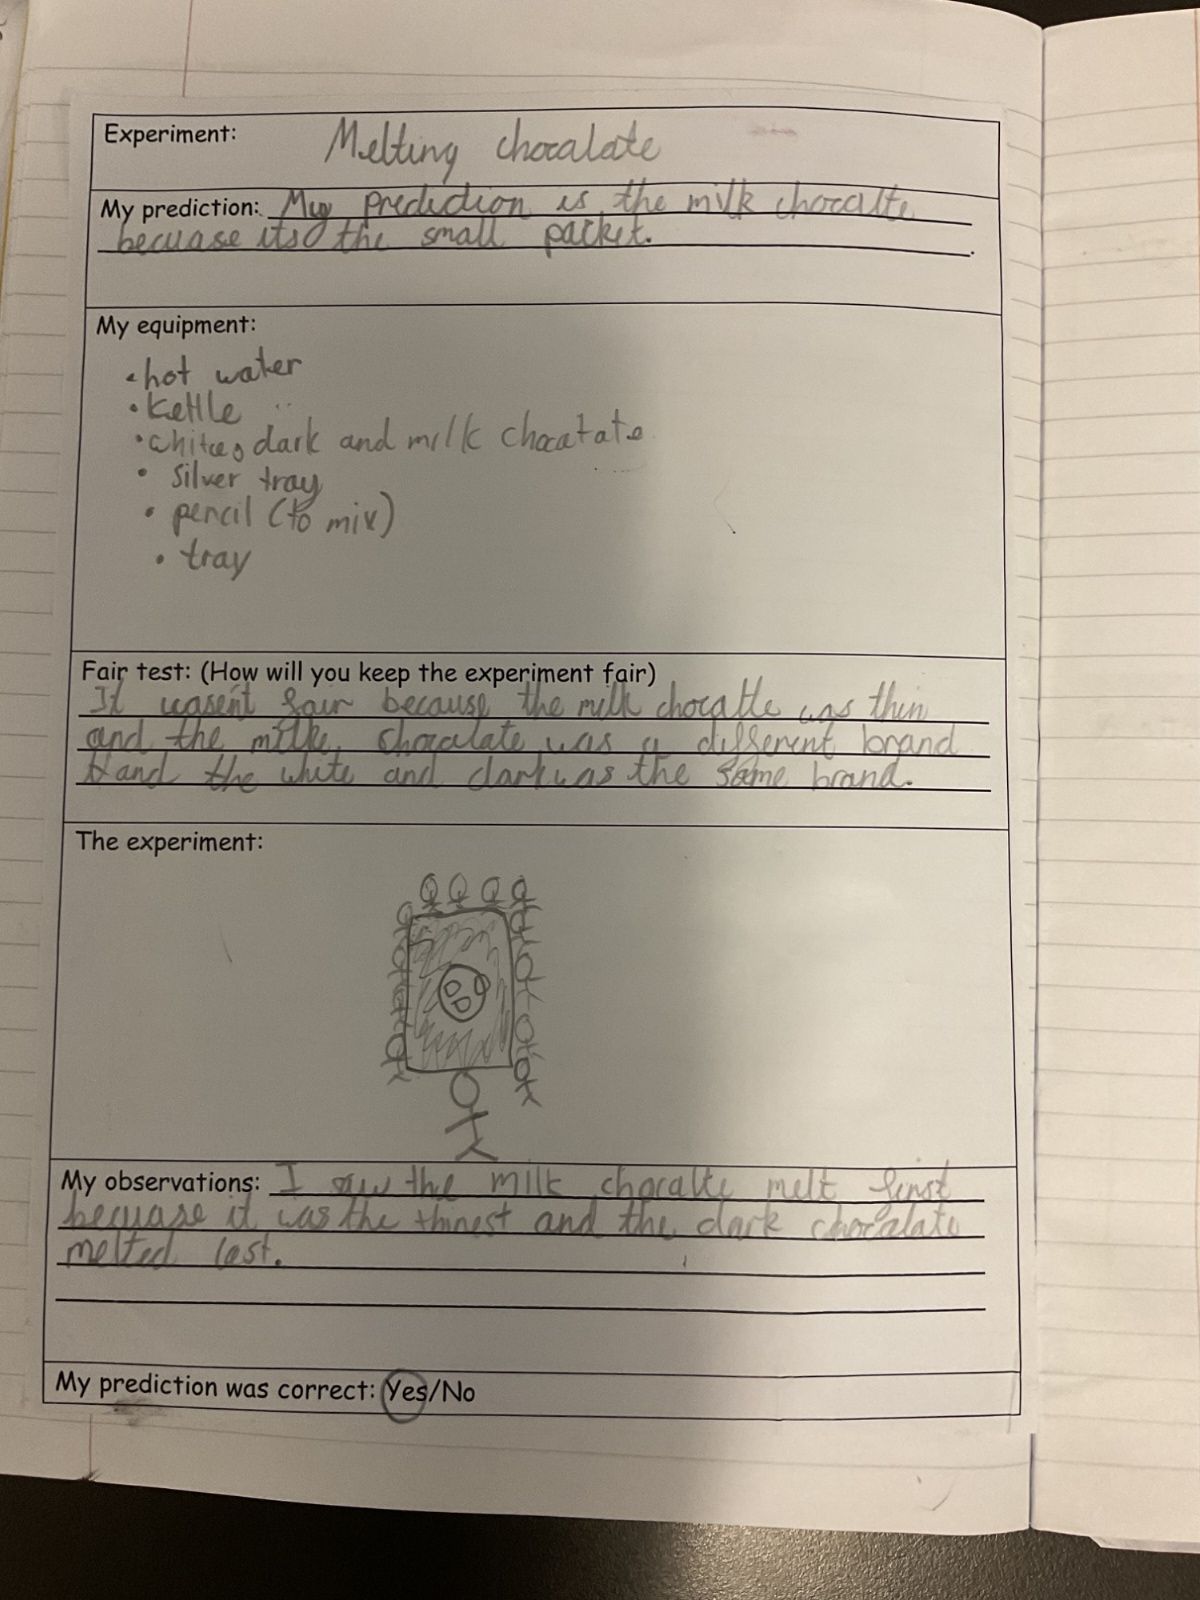 Experiment: Melting chocalate
My prediction: My prediction is the milk chocalte
becuase its the small packet.
My equipment:
• hot water
• Kettle
• white, dark and milk chocatate
• Silver tray
• pencil (to mix)
• tray
Fair test: (How will you keep the experiment fair)
It wasen't fair because the milk chocalte was thin
and the milke chocalate was a different brand
and the white and dark was the same brand.
The experiment:
My observations: I saw the milk chocalte melt first
becuase it was the thinest and the dark chocalate
melted last.
My prediction was correct: Yes/No